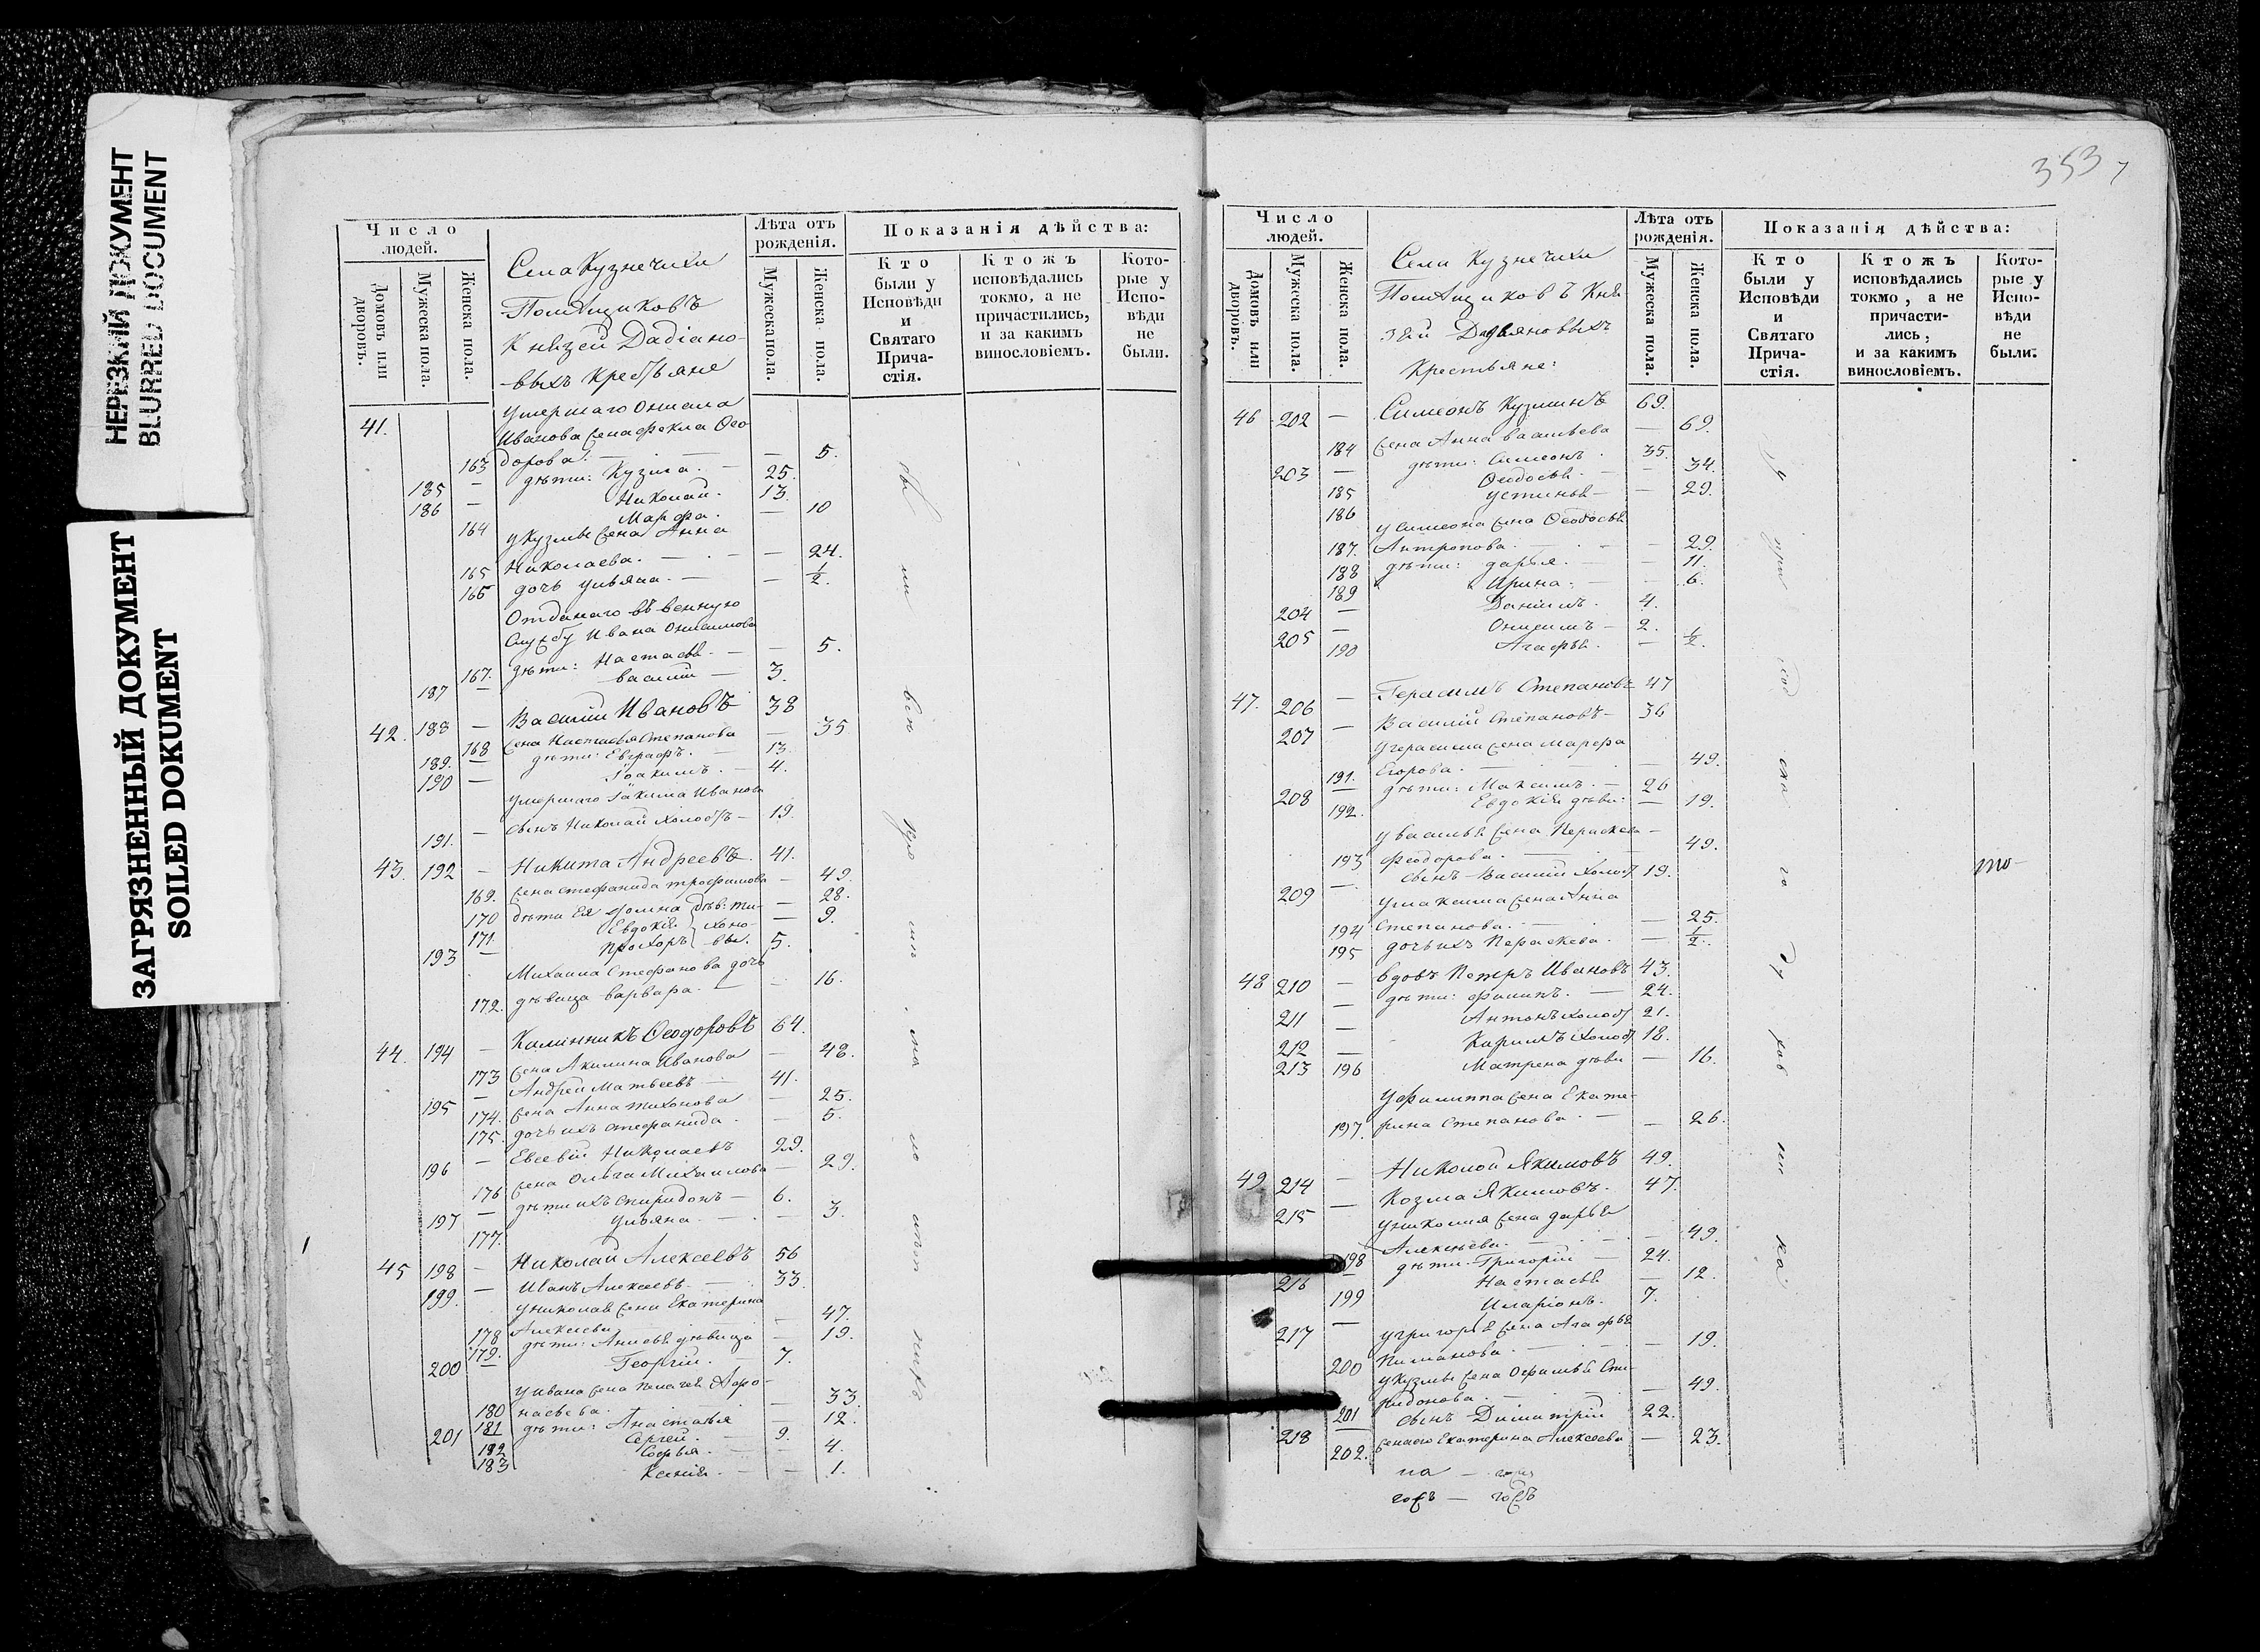 НЕРЕЗКИЙ ДОКУМЕНТ
BLURRED DOCUMENT
ЗАГРЯЗНЕННЫЙ ДОКУМЕНТ
SOILED DOKUMENT
Число людей.
Домовъ или дворовъ.
Мужеска пола.
Женска пола.
Села Кузнечихи
Помѣщиковъ
Князей Дадіано-
-выхъ Крестьяне
Лѣта отъ рожденія.
Мужеска пола.
Женска пола.
Показанія дѣйства:
Кто были у Исповѣди и Святаго Причастія.
Ктожъ исповѣдались токмо, а не причастились, и за какимъ винословіемъ.
Которые у Исповѣди не были.
41. Умершаго Онисима
Иванова жена Фекла Ѳео
163 дорова. — 5.
185 — дѣти: Кузма. — 25.
186 — Николай. 13.
164 Марфа. — 10
У Кузмы жена Анна
165 Николаева. — 24.
166 дочь Ульяна. — 1/2.
Отданаго въ военную
Службу Ивана Онисимова
167. дѣти: Настасья. — 5.
187 — Василій — 3.
42. 188 — Василій Ивановъ 38
168 жена Настасья Степанова — 35
189. — дѣти: Евграфъ. — 13.
190 — Іоакимъ. — 4.
умершаго Іакима Иванова
191. — сынъ Николай холостъ — 19.
43. 192 — Никита Андреевъ. 41.
169. жена Стефанида Трофимова — 49.
170 дѣти Ея — 28.
171 Евдокія — 9.
193 — Прохоръ 5.
Михаила Стефанова дочь
172. дѣвица Варвара. — 16.
44. 194 — Калинникъ Ѳеодоровъ 64.
173 жена Акилина Иванова — 48.
195 — Андрей Матвеевъ — 41.
174. жена Анна Тихонова — 25.
175. дочь ихъ Стефанида. — 5.
196 — Евсевій Николаевъ 29.
176 жена Ольга Михаилова — 29.
197 — дѣти ихъ Спиридонъ — 6.
177. Ульяна. — 3.
45 198 — Николай Алексеевъ 56
199. — Иванъ Алексеевъ — 33.
У Николая жена Екатерина
178 Алексеева — 47.
179. дѣти: Анисья дѣвица — 19.
200 — Георгій. — 7.
У Ивана жена Пелагея Афо-
180 насьева. — 33.
181 дѣти: Анастасья — 12.
201 Сергей. — 9.
182 Софья. — 4.
183 Ксенія. — 1.
353
Число людей.
Домовъ или дворовъ.
Мужеска пола.
Женска пола.
Села Кузнечихи
Помѣщиковъ Кня-
зей Дадьяновыхъ
Крестьяне:
Лѣта отъ рожденія.
Мужеска пола.
Женска пола.
Показанія дѣйства:
Кто были у Исповѣди и Святаго Причастія.
Ктожъ исповѣдались токмо, а не причастились, и за какимъ винословіемъ.
Которые у Исповѣди не были.
46 202 — Симеонъ Кузминъ 69.
184 жена Анна Васильева — 69.
203 — дѣти: Симеонъ. 35.
185 Ѳеодосья. — 34.
186 Устинья — 29.
у Симеона жена Ѳеодосья
187. Антропова. — 29.
188 дѣти: Дарья. — 11.
189 Ирина. — 6.
204 — Даніилъ. 4.
205 — Онисимъ — 2.
190 Агафья. — 1/2.
47. 206 — Герасимъ Степановъ 47
207 — Василій Степановъ — 36
У Герасима жена Марфа
191. Егорова. — 49.
208 — дѣти: Максимъ. — 26
192. Евдокія дѣви: — 19.
у Василья жена Параскева —
193 Феодорова. — 49.
209 — сынъ Василій холост 19.
У Максима жена Анна
194 Степанова. — 25.
195 дочь ихъ Параскева. — 1/2.
48 210 — Вдовъ Петръ Ивановъ 43.
211 — дѣти: Филипъ. — 24.
212 — Антонъ холост 21.
213 — Кирилъ холост 18.
196 Матрена дѣви — 16.
У Филиппа жена Екате-
197. рина Степанова. — 26.
49 214 — Николай Якимовъ 49.
215 — Козма Якимовъ. 47.
У Николая жена Дарья
198 Алексѣева. — 49.
216 — дѣти: Григорій — 24.
199 Настасья — 12.
217 — Иларіонъ. 7.
У Григорья жена Агафья
200 — 19.
У Кузмы жена Ефимья Спи-
201 ридонова. — 49.
218 — сынъ Димитрій 22.
202. жена его Екатерина Алексеева — 23.